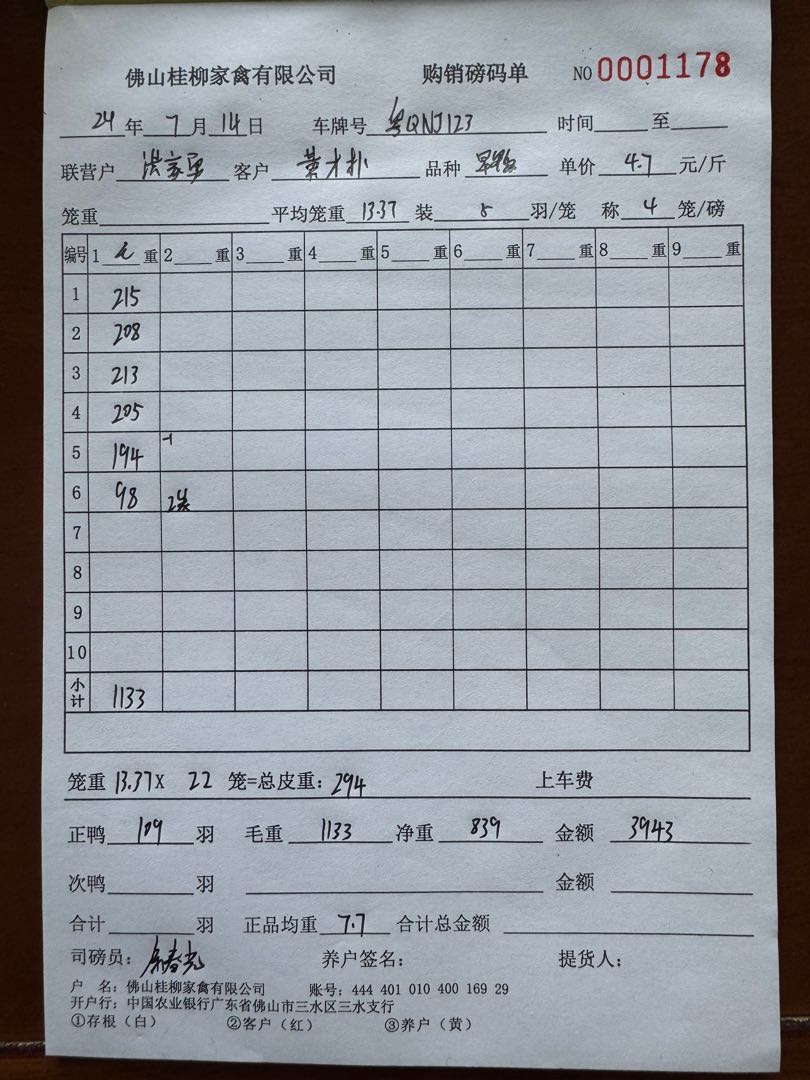 佛山桂柳家禽有限公司 购销磅码单 NO 0001178
24 年 7 月 14 日 车牌号 粤QNJ123 时间 至
联营户 洪家勇 客户 黄才朴 品种 单价 4.7 元/斤
笼重 平均笼重 13.37 装 5 羽/笼 称 4 笼/磅
编号 1 重 2 重 3 重 4 重 5 重 6 重 7 重 8 重 9 重
1 215
2 208
3 213
4 205
5 194 -1
6 98 2笼
7
8
9
10
小计 1133
笼重 13.37 X 22 笼=总皮重: 294 上车费
正鸭 109 羽 毛重 1133 净重 839 金额 3943
次鸭 羽 金额
合计 羽 正品均重 7.7 合计总金额
司磅员: 养户签名: 提货人:
户 名: 佛山桂柳家禽有限公司 账号: 444 401 010 400 169 29
开户行: 中国农业银行广东省佛山市三水区三水支行
①存根(白) ②客户(红) ③养户(黄)